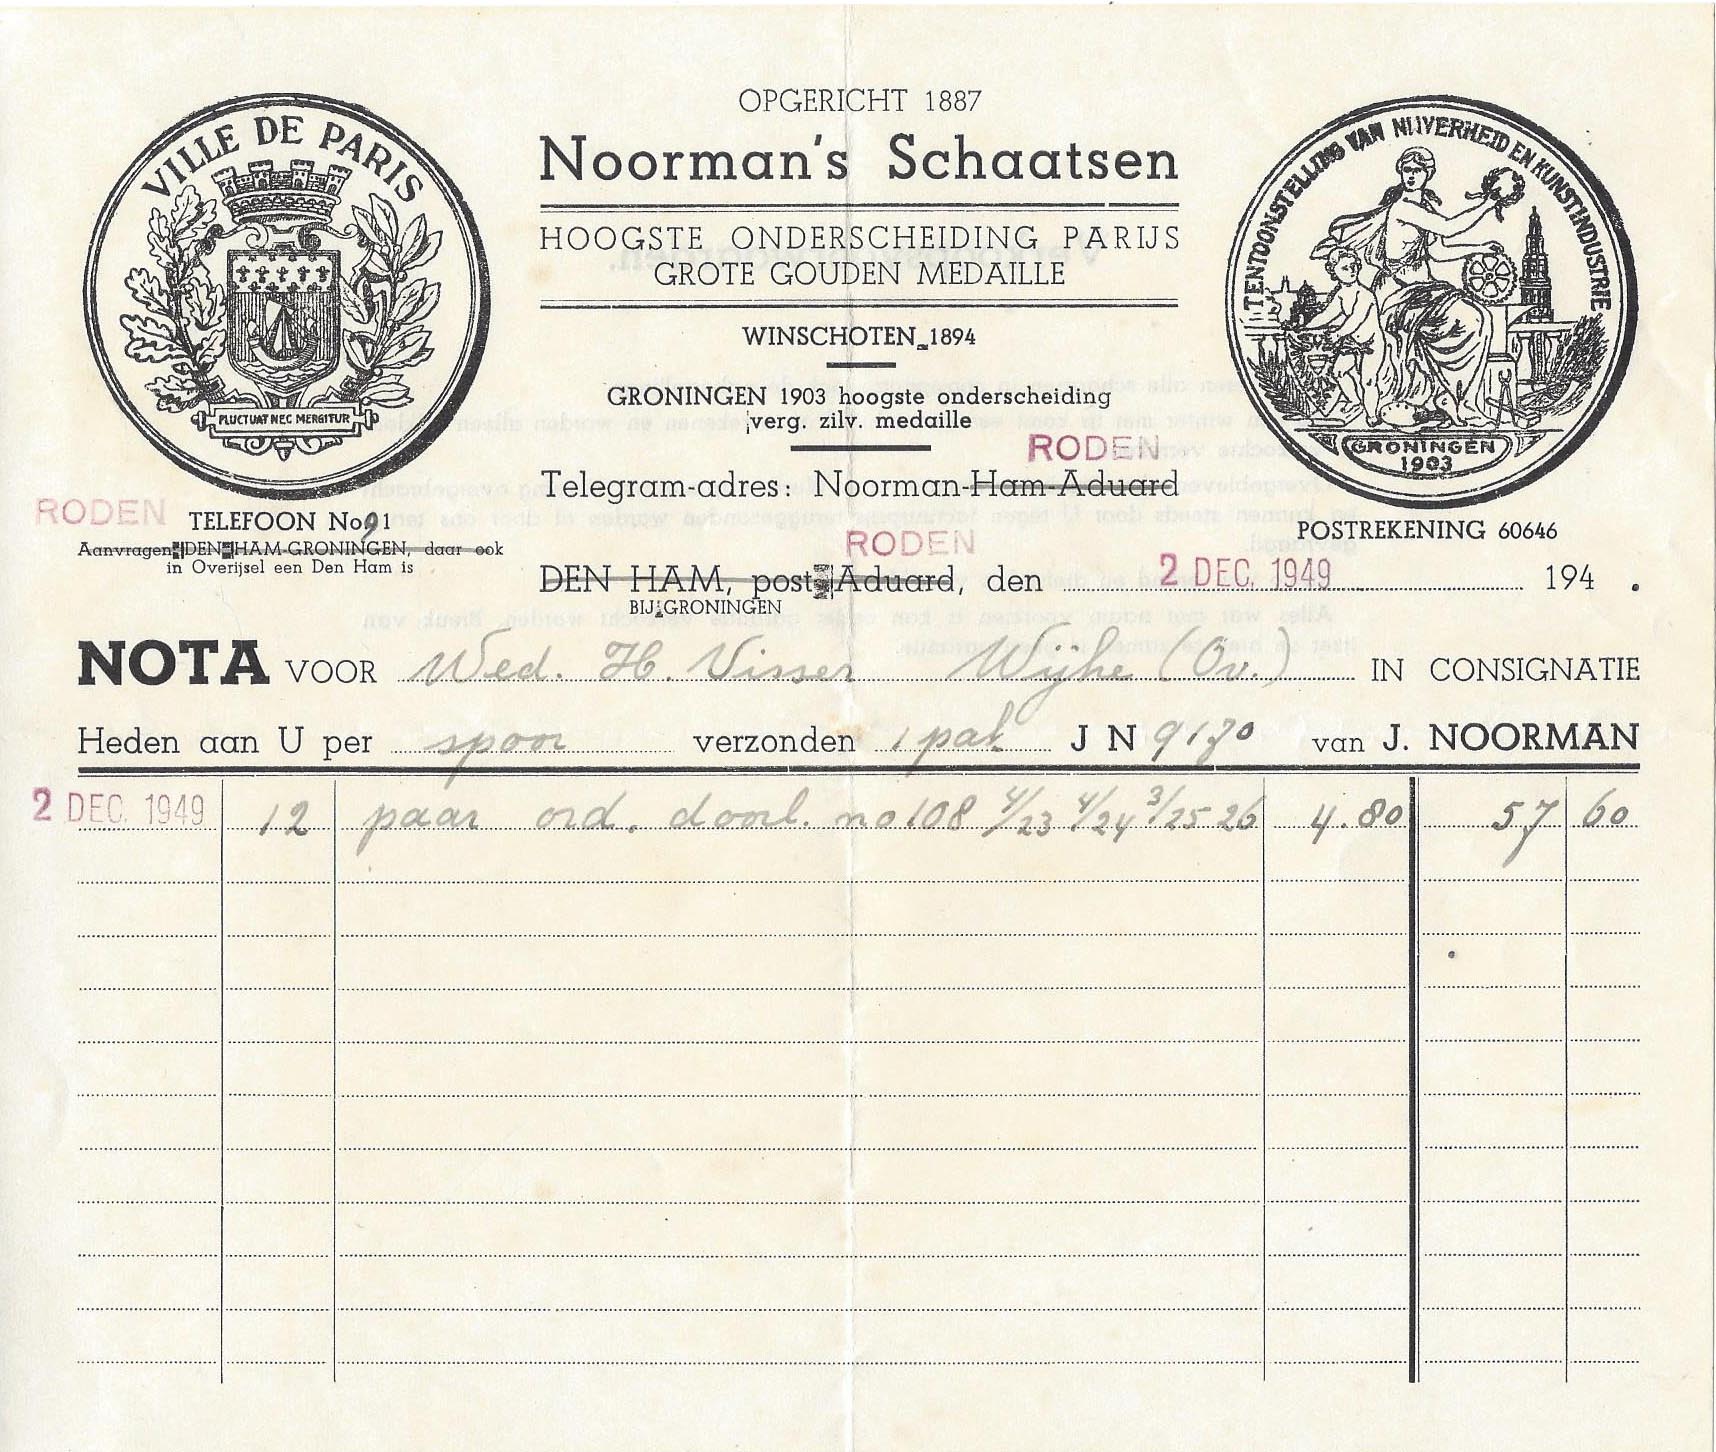 OPGERICHT 1887
Noorman's Schaatsen
HOOGSTE ONDERSCHEIDING PARIJS
GROTE GOUDEN MEDAILLE
WINSCHOTEN 1894
GRONINGEN 1903 hoogste onderscheiding
verg. zilv. medaille
RODEN
Telegram-adres: Noorman-Ham-Aduard
VILLE DE PARIS
FLUCTUAT NEC MERGITUR
TENTOONSTELLING VAN NIJVERHEID EN KUNSTINDUSTRIE
GRONINGEN
1903
RODEN TELEFOON No 91
Aanvragen DEN HAM-GRONINGEN, daar ook
in Overijsel een Den Ham is
POSTREKENING 60646
RODEN
DEN HAM, post Aduard, den 2 DEC. 1949 194 .
BIJ GRONINGEN
NOTA VOOR Wed. H. Visser Wijhe (Ov.) IN CONSIGNATIE
Heden aan U per spoor verzonden 1 pak J N 9170 van J. NOORMAN
2 DEC. 1949 12 paar ord. doorl. no 108 4/23 4/24 3/25 26 4.80 57 60